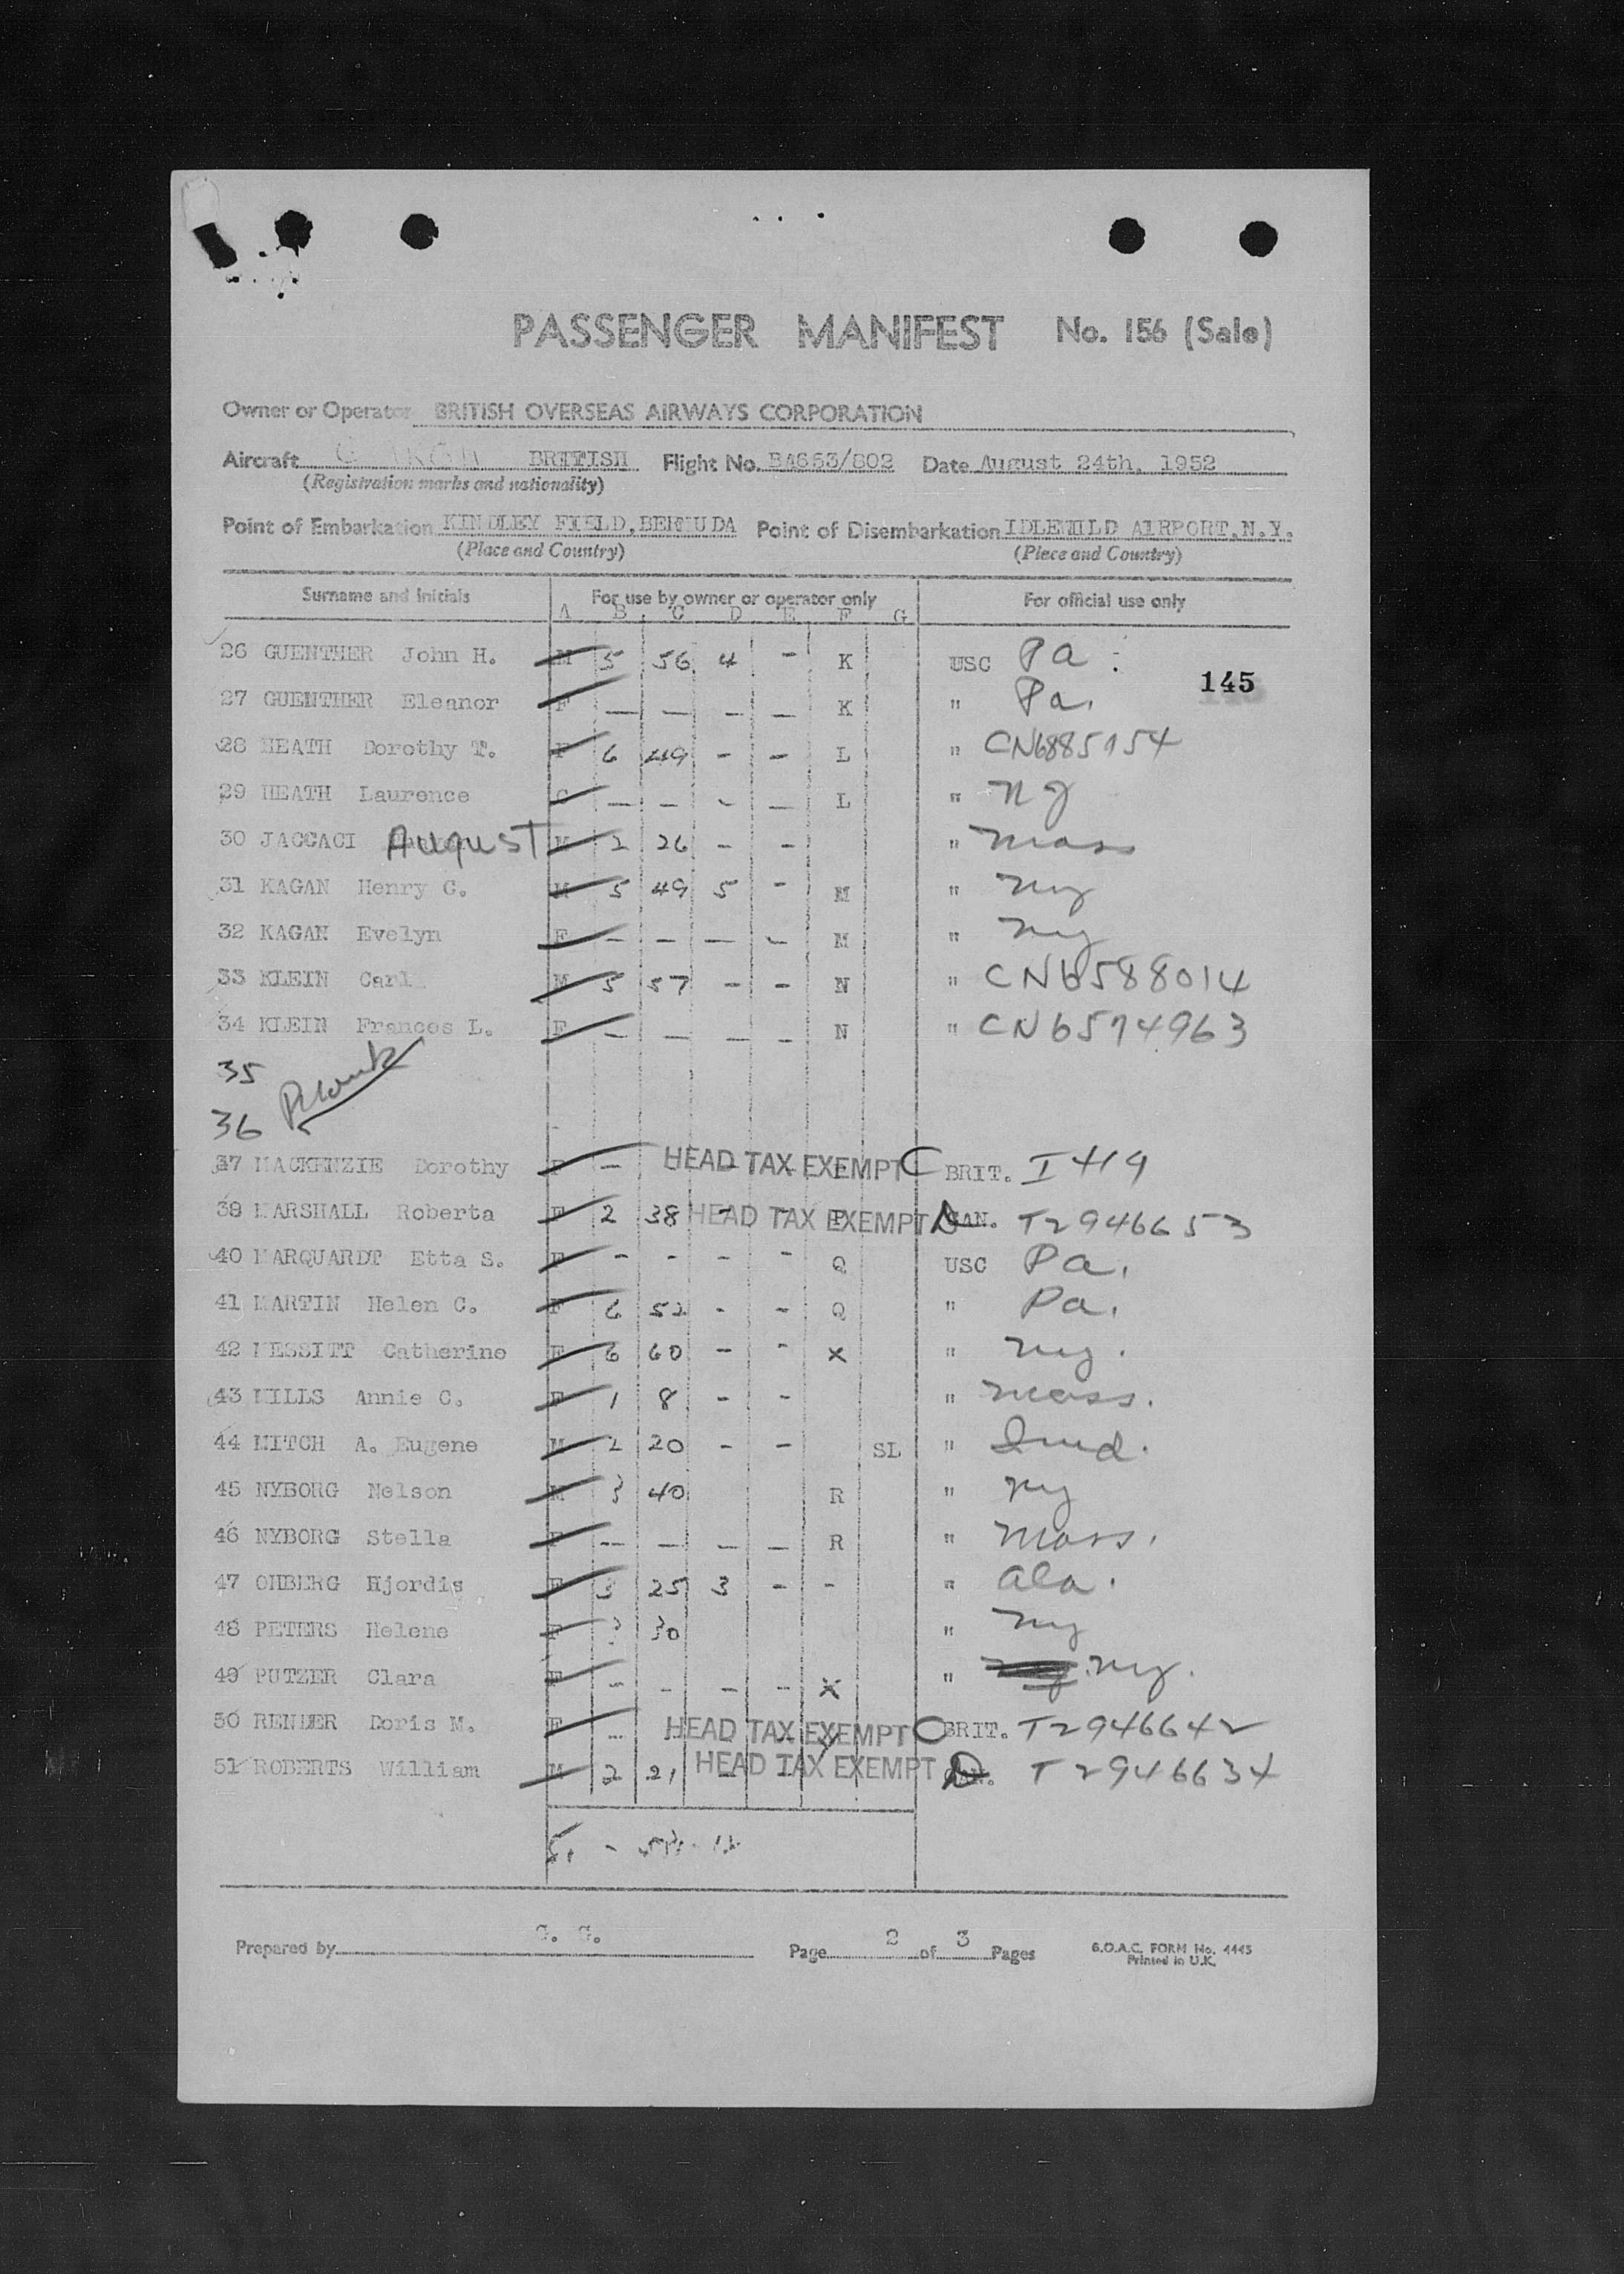 PASSENGER MANIFEST No. 156 (Sale)
Owner or Operator BRITISH OVERSEAS AIRWAYS CORPORATION
Aircraft BRITISH Flight No. BA653/802 Date August 24th, 1952
(Registration marks and nationality)
Point of Embarkation KINDLEY FIELD, BERMUDA Point of Disembarkation IDLEWILD AIRPORT, N.Y.
(Place and Country) (Place and Country)
Surname and Initials For use by owner or operator only For official use only
A B C D E F G
26 GUENTHER John H. M 5 56 4 - K USC Pa.
145
27 GUENTHER Eleanor F — — — — K " Pa.
28 HEATH Dorothy T. F 6 49 - - L " CN6885154
29 HEATH Laurence C — - - — L " NJ
30 JACCACI August M 2 26 - - " Mass
31 KAGAN Henry C. M 5 49 5 - M " Ny
32 KAGAN Evelyn F - - — - M " Ny
33 KLEIN Carl M 5 57 - - N " CN6588014
34 KLEIN Frances L. F - — — - N " CN6574963
35
36 Blank
37 MACKENZIE Dorothy F — HEAD TAX EXEMPT C BRIT. I 419
39 MARSHALL Roberta F 2 38 HEAD TAX EXEMPT D CAN. T2946653
40 MARQUARDT Etta S. F - - - - Q USC Pa.
41 MARTIN Helen C. F 6 52 - - Q " Pa.
42 MESSITT Catherine F 6 60 - - X " Ny.
43 MILLS Annie C. F 1 8 - - " Mass.
44 MITCH A. Eugene M 2 20 - - SL " Ind.
45 NYBORG Nelson M 3 40 R " Ny
46 NYBORG Stella F — — — — R " Mass.
47 OHBERG Hjordis F 3 25 3 - - " Ala.
48 PETERS Helene F 3 30 " Ny
49 PUTZER Clara F - - - - X " Ny.
50 RENDER Doris M. F - HEAD TAX EXEMPT C BRIT. T2946642
51 ROBERTS William M 2 21 HEAD TAX EXEMPT D CAN. T2946634
Prepared by G. G. Page 2 of 3 Pages B.O.A.C. FORM No. 4445
Printed in U.K.